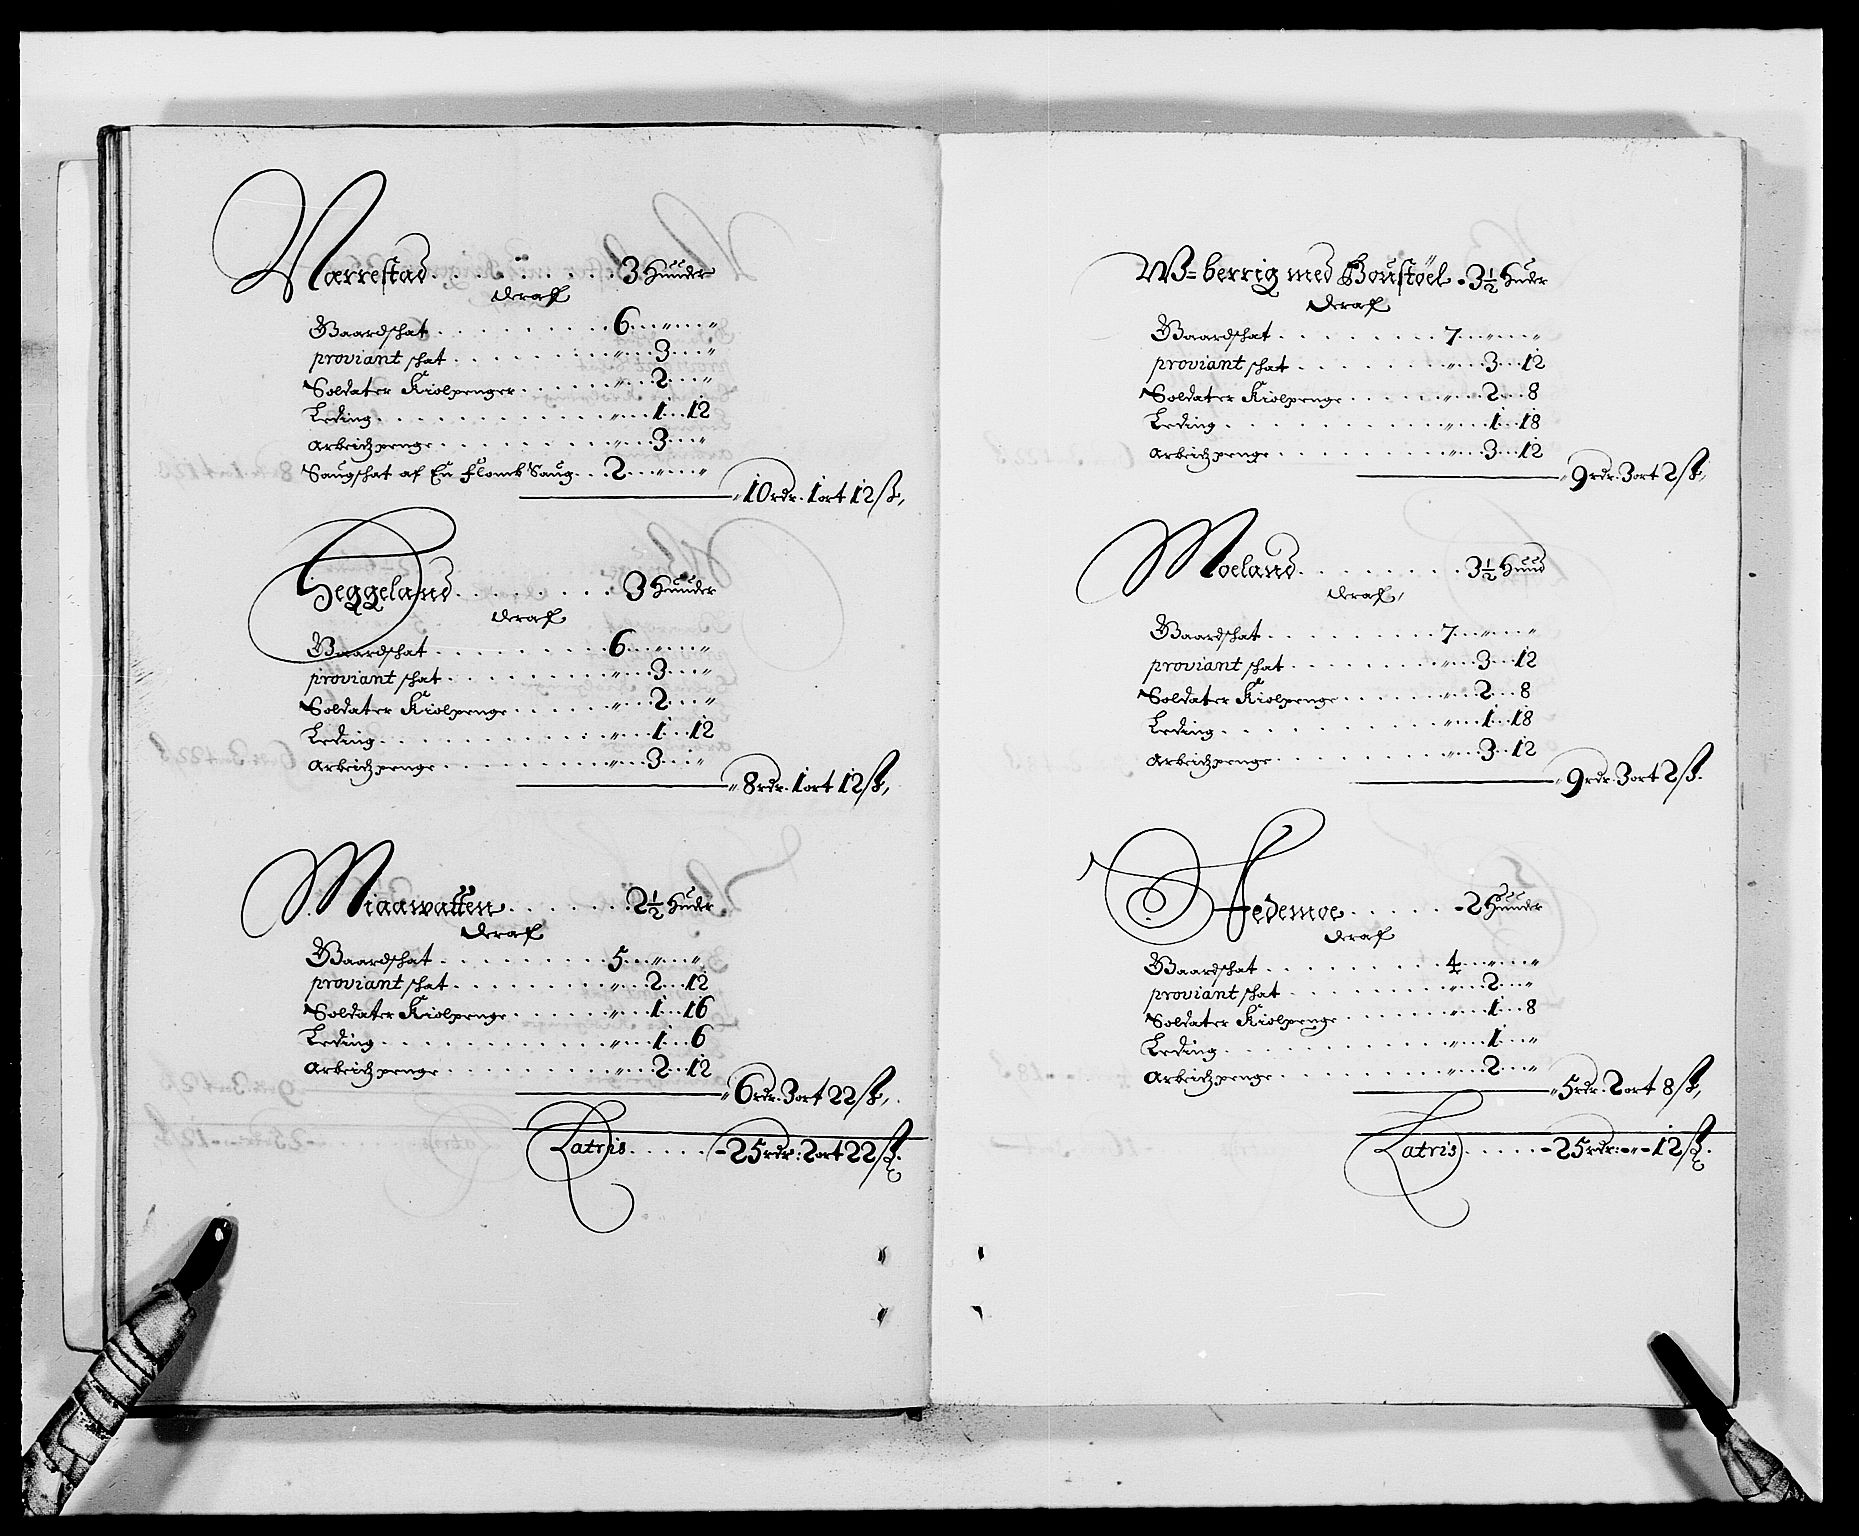 Narrestad . . . . . . . 3 Huuder
deraf
Gaardschat . . . . . . . . . 6 „ „
proviant schat . . . . . . . „ 3 „
Soldater Kiolpenger . . . . . „ 2 „
Leding . . . . . . . . . . . „ 1 12
Arbeidtzpenge . . . . . . . . „ 3 „
Saugschat af En flomb Saug . . 2 „ „
10 rdr. 1 ort 12 ß,
Heggeland . . . . . . . . 3 Huuder
deraf
Gaardschat . . . . . . . . . 6 „ „
proviant schat . . . . . . . „ 3 „
Soldater Kiolpenge . . . . . „ 2 „
Leding . . . . . . . . . . . „ 1 12
Arbeidtzpenge . . . . . . . . „ 3 „
8 rdr. 1 ort 12 ß,
Miaawatten . . . . . . 2½ Hudr
deraf
Gaardschat . . . . . . . . . 5 „ „
proviant schat . . . . . . . „ 2 12
Soldater Kiolpenge . . . . . „ 1 16
Leding . . . . . . . . . . . „ 1 6
Arbeidtzpenge . . . . . . . . „ 2 12
6 rdr. 3 ort 22 ß,
Latris . . . . . - 25 rdr: 2 ort 22 ß.
W=berrig med Boustöel - 3½ Huder
deraf
Gaardschat . . . . . . . . . 7 „ „
proviant schat . . . . . . . „ 3 12
Soldater Kiolpenge . . . . . „ 2 8
Leding . . . . . . . . . . . „ 1 18
Arbeidtzpenge . . . . . . . . „ 3 12
9 rdr. 3 ort 2 ß,
Moeland . . . . . . . . 3½ Huud
deraf,
Gaardschat . . . . . . . . . 7 „ „
proviant schat . . . . . . . „ 3 12
Soldater Kiolpenge . . . . . „ 2 8
Leding . . . . . . . . . . . „ 1 18
Arbeidtzpenge . . . . . . . . „ 3 12
9 rdr. 3 ort 2 ß.
Hedemoe . . . . . - 2 Huuder
deraf
Gaardschat . . . . . . . . . 4 „ „
proviant schat . . . . . . . „ 2 „
Soldater Kiolpenge . . . . . „ 1 8
Leding . . . . . . . . . . . „ 1 „
Arbeidtzpenge . . . . . . . . „ 2 „
5 rdr. 2 ort 8 ß,
Latris . . . . . - 25 rdr: - „ - 12 ß.